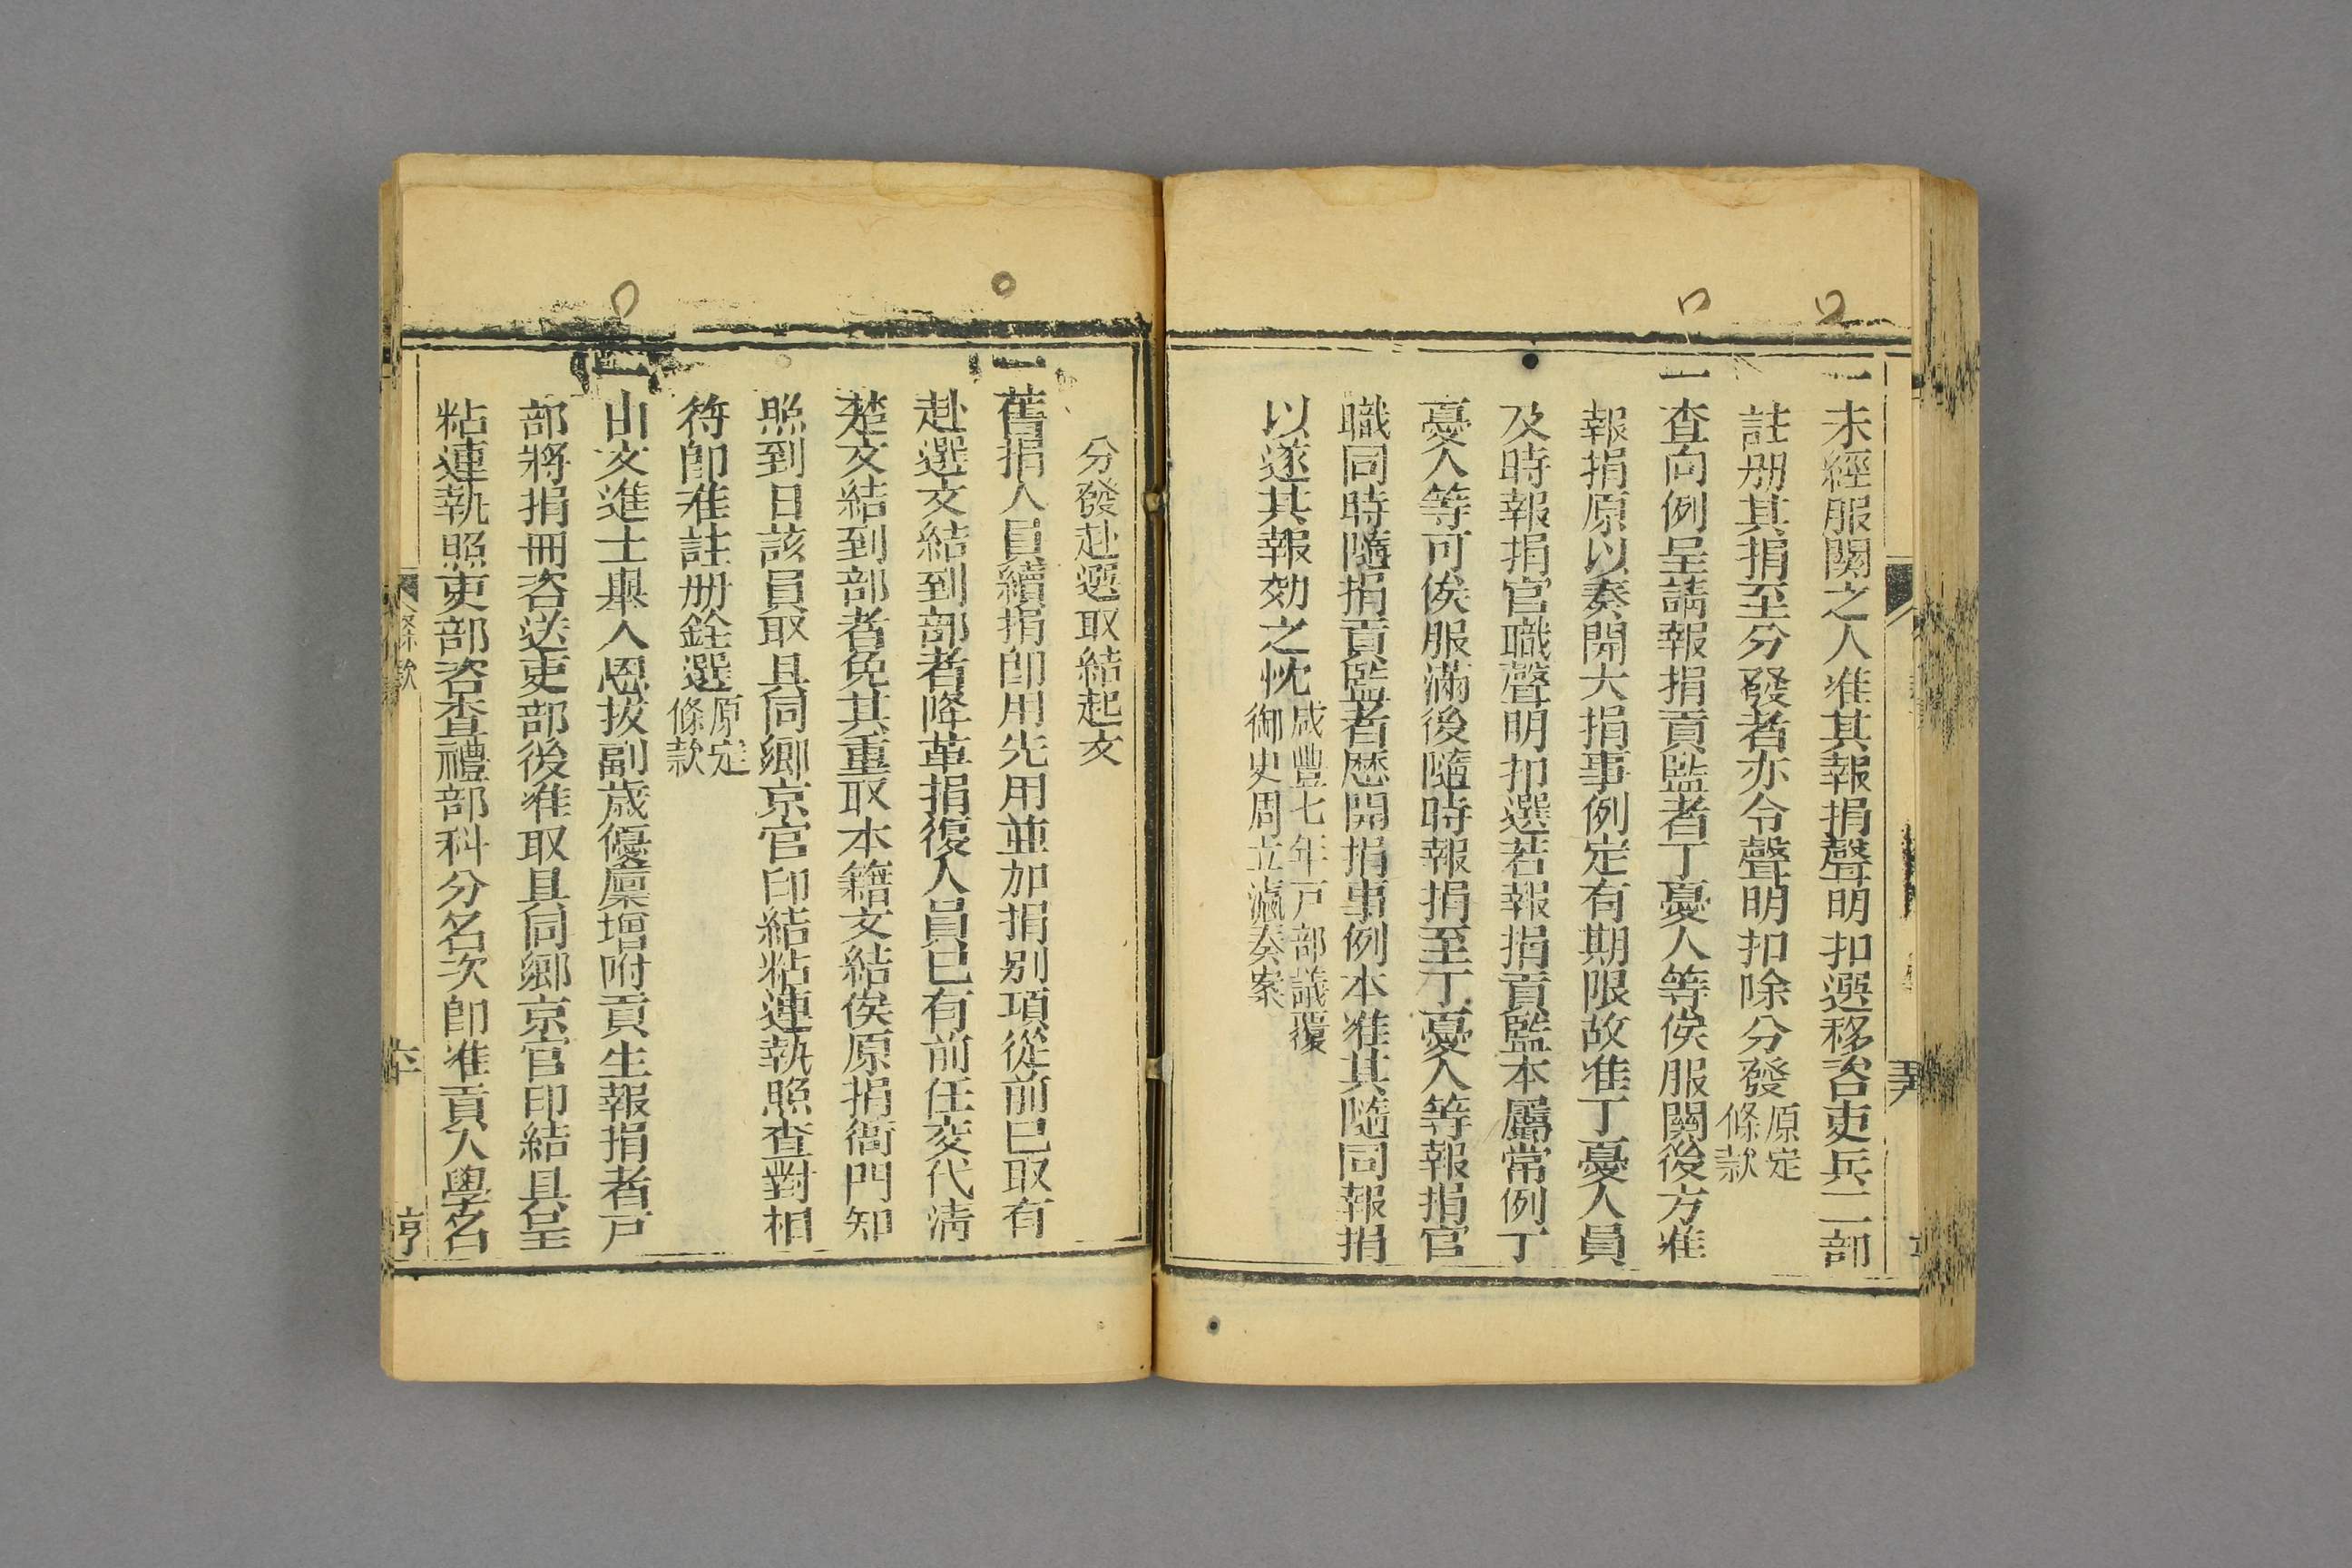 一未經服闋之人准其報捐聲明扣選移咨吏兵二部
註册其捐至分發者亦令聲明扣除分發原定條款
一查向例呈請報捐貢監者丁憂人等俟服闋後方准
報捐原以奏開大捐事例定有期限故准丁憂人員
及時報捐官職聲明扣選若報捐貢監本屬常例丁
憂人等可俟服滿後隨時報捐至丁憂人等報捐官
職同時隨捐貢監者歷開捐事例本准其隨同報捐
以遂其報効之忱咸豐七年戸部議覆
御史周立瀛奏案
分發赴選取結起文
一舊捐人員續捐卽用先用並加捐别項從前已取有
赴選文結到部者降革捐復人員已有前任交代淸
楚文結到部者免其重取本籍文結俟原捐衙門知
照到日該員取具同鄉京官印結粘連執照查對相
符卽准註册銓選原定條款
一由文進士舉人恩拔副歲優廩增附貢生報捐者戸
部將捐冊咨送吏部後准取具同鄉京官印結具呈
粘連執照吏部咨查禮部科分名次卽准貢入學名
條款
亨